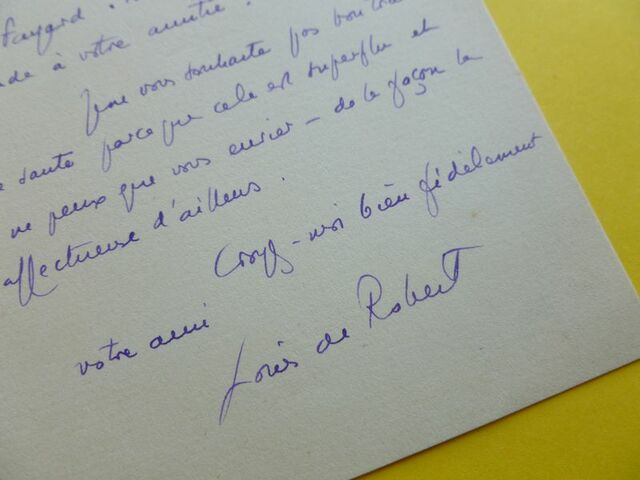 Fayard.
à votre amitié.
Je ne vous souhaite pas
santé parce que cela est superflu et
ne peux que vous envier – de la façon la
affectueuse d'ailleurs.
Croyez-moi bien fidèlement
votre ami
Louis de Robert